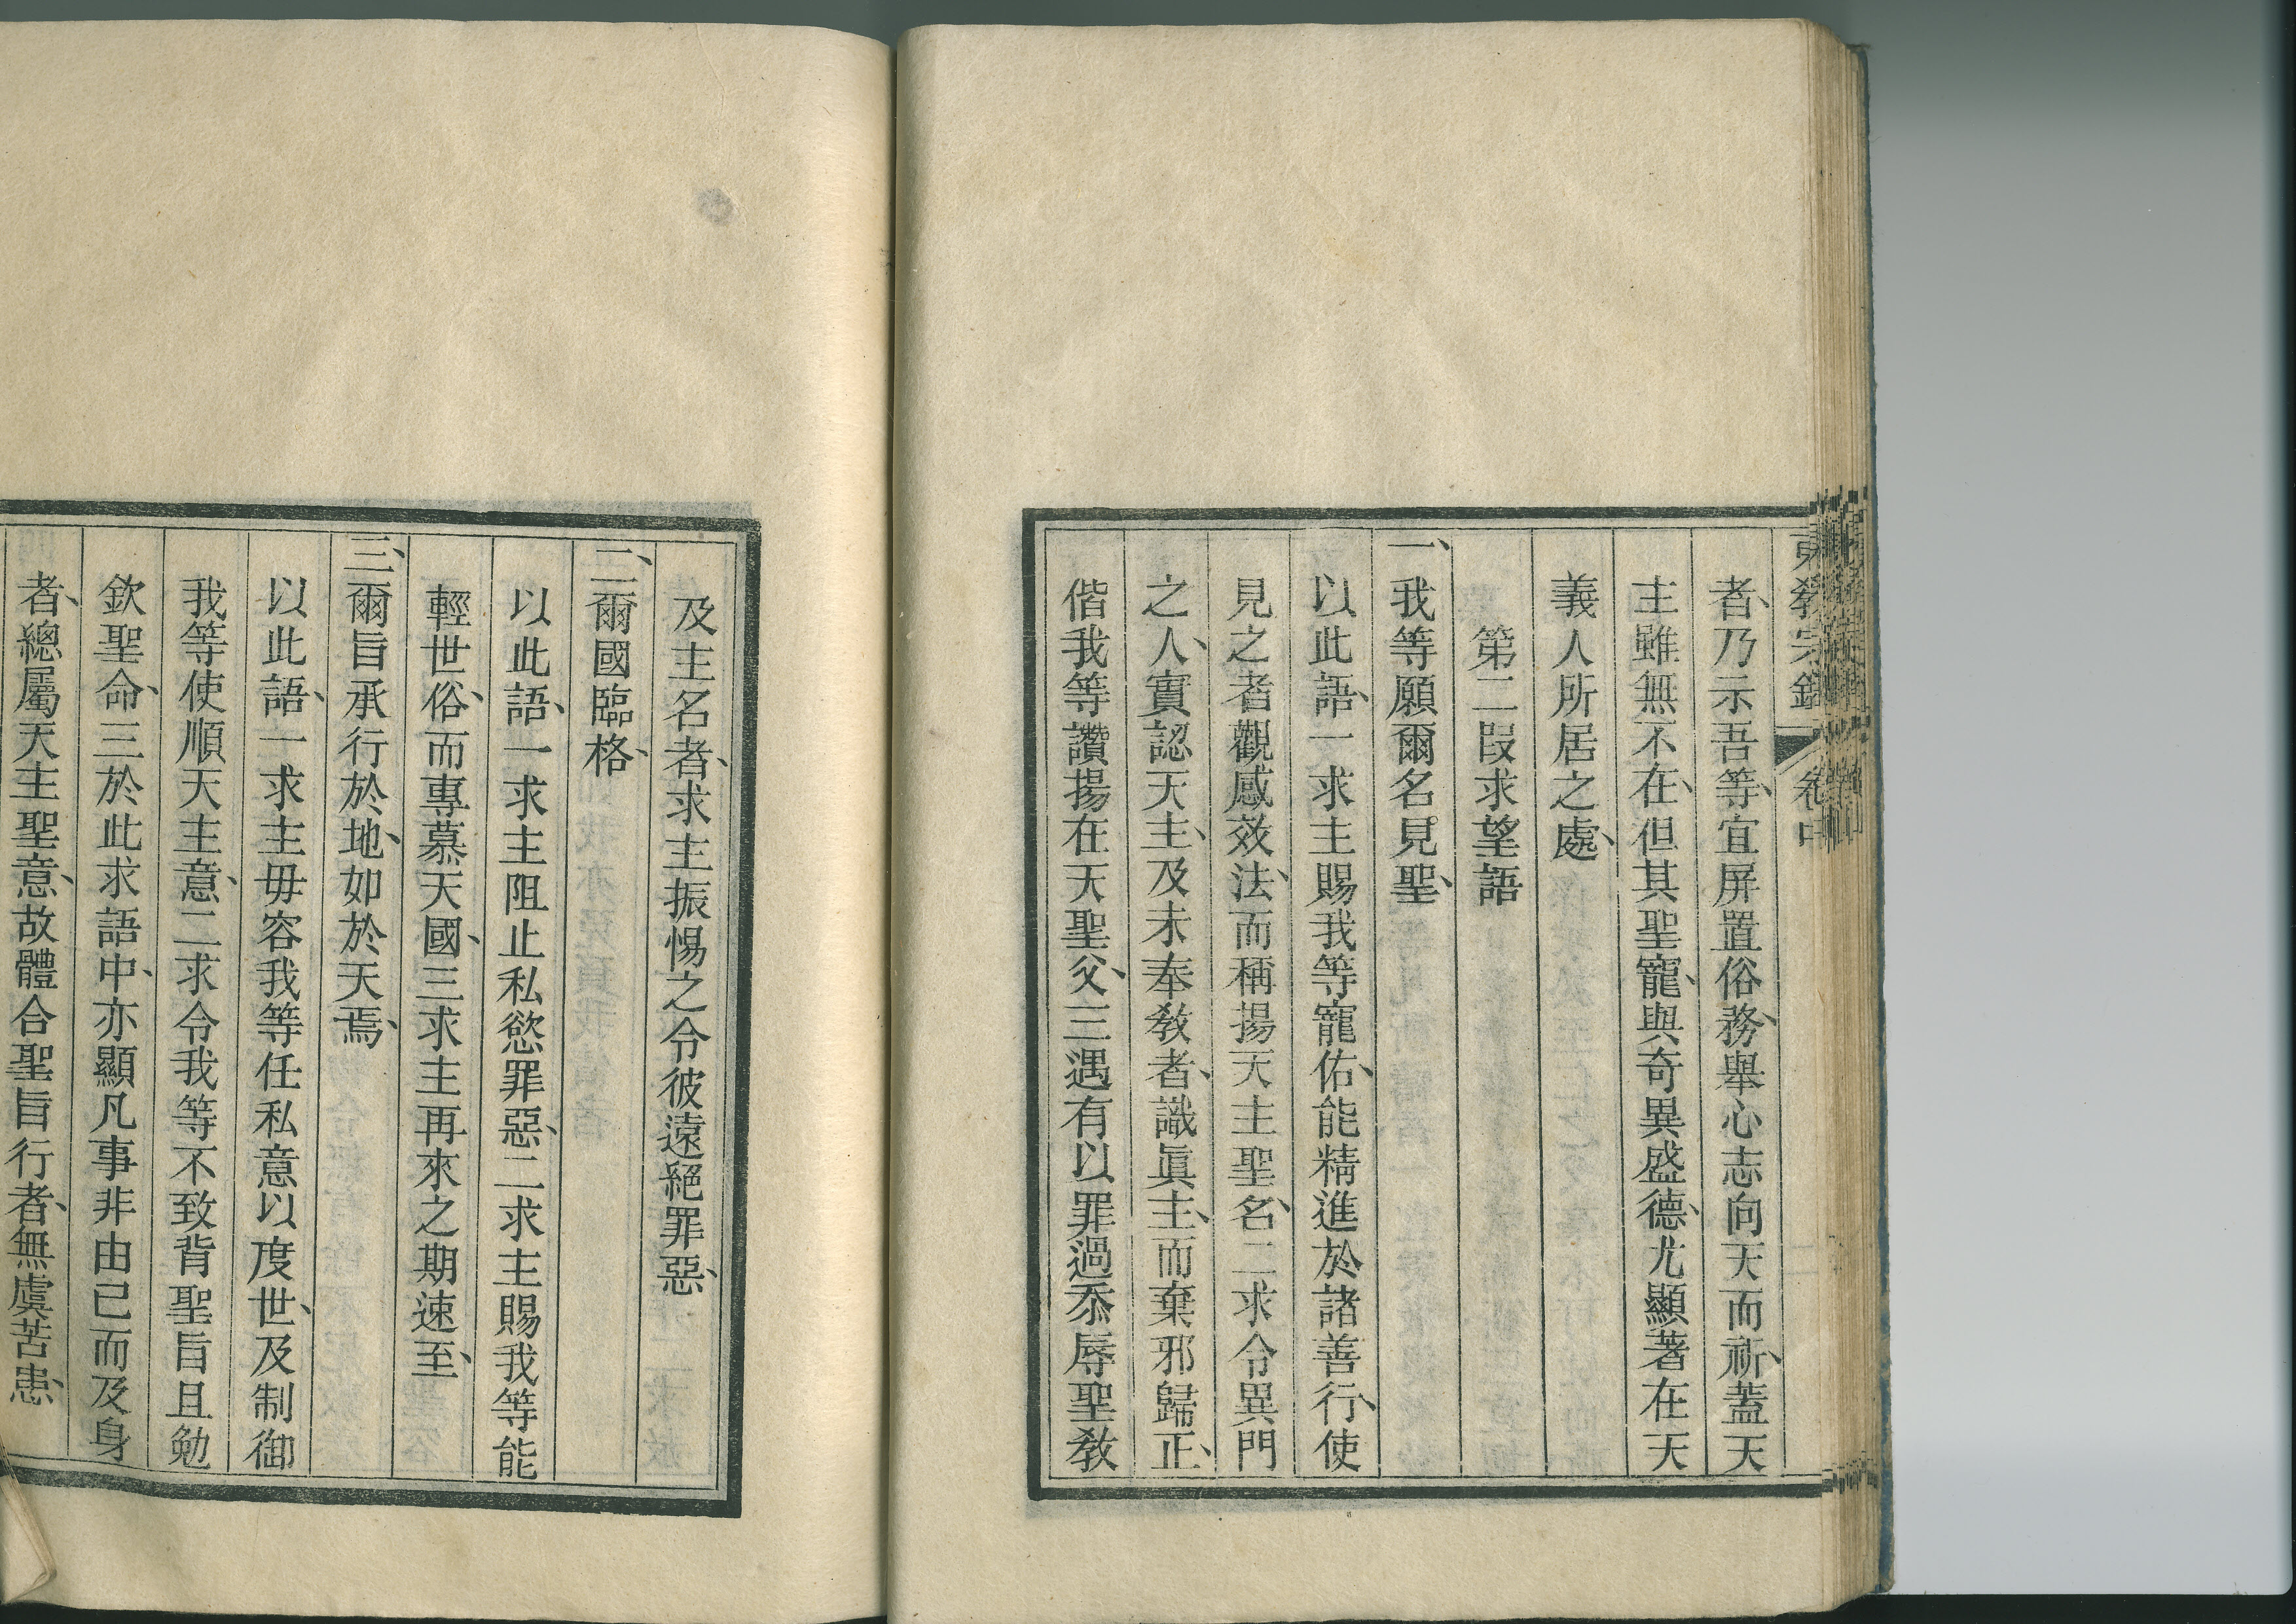 東敎宗鑑 卷中
者、乃示吾等、宜屏置俗務、舉心志向天而祈、蓋天
主雖無不在、但其聖寵、與奇異盛德、尤顯著在天
義人所居之處、
第二段求望語
一、我等願爾名見聖、
以此語、一求主賜我等寵佑、能精進於諸善行、使
見之者觀感效法、而稱揚天主聖名、二求令異門
之人、實認天主、及未奉敎者、識眞主、而棄邪歸正、
偕我等讚揚在天聖父、三遇有以罪過忝辱聖敎
及主名者、求主振惕之令彼遠絕罪惡、
二、爾國臨格、
以此語、一求主阻止私慾罪惡、二求主賜我等能
輕世俗、而專慕天國、三求主再來之期速至、
三、爾旨承行於地、如於天焉、
以此語、一求主毋容我等任私意以度世、及制御
我等使順天主意、二求令我等不致背聖旨且勉
欽聖命、三於此求語中、亦顯凡事非由己而及身
者、總屬天主聖意、故體合聖旨行者、無虞苦患、